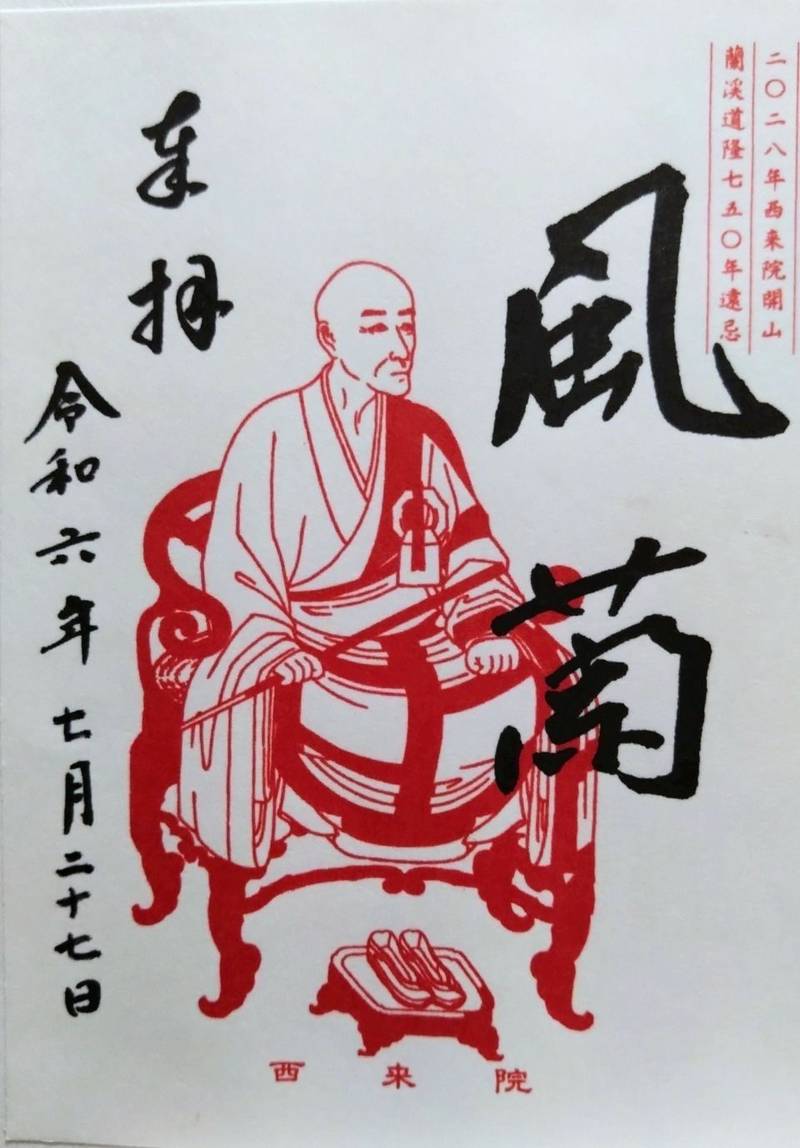 二〇二八年西来院開山
蘭溪道隆七五〇年遠忌
風蘭
奉拝
令和六年七月二十七日
西来院